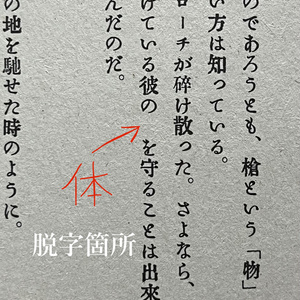 のであろうとも、槍という「物」
い方は知っている。
ローチが砕け散った。さよなら、
けている彼の　を守ることは出來
んだのだ。
の地を馳せた時のように。
体
脱字箇所